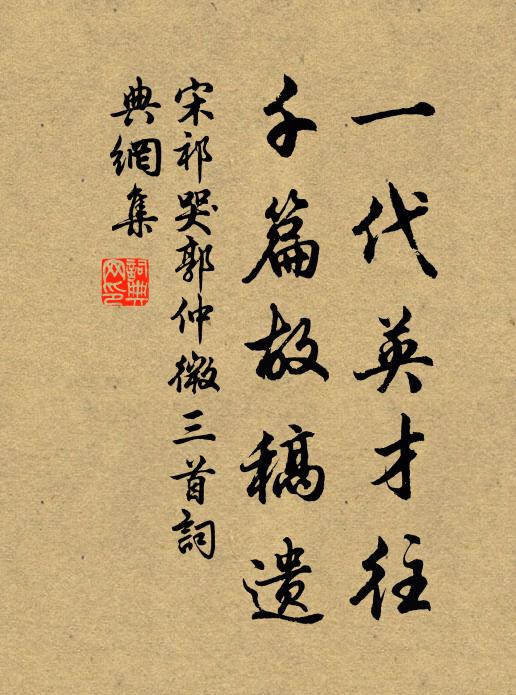 一代英才往
千篇故稿遗
宋祁哭郭仲微三首詞
典網集
詞典
网印